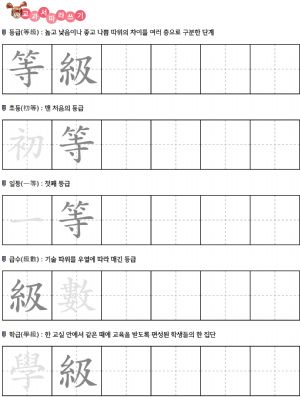 교과서따라쓰기
등급(等級) : 높고 낮음이나 좋고 나쁨 따위의 차이를 여러 층으로 구분한 단계
等 級
초등(初等) : 맨 처음의 등급
初 等
일등(一等) : 첫째 등급
一 等
급수(級數) : 기술 따위를 우열에 따라 매긴 등급
級 數
학급(學級) : 한 교실 안에서 같은 때에 교육을 받도록 편성된 학생들의 한 집단
學 級